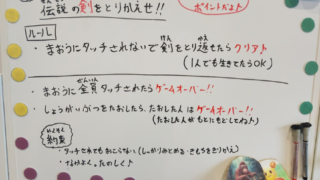 ポイントだよ♪
伝説の剣をとりかえせ!!
ルール
・まおうにタッチされないで剣をとり返せたらクリア!!
(1人でも生きてたらOK)
・まおうに全員タッチされたらゲームオーバー!!
・しょうがいぶつをたおしたら、たおした人はゲームオーバー!!
(たおした人がもとにもどしてね♪)
約束
・タッチされてもおこらない(しっかりみとめる・きもちをきりかえ)
・なかよく、たのしく♪